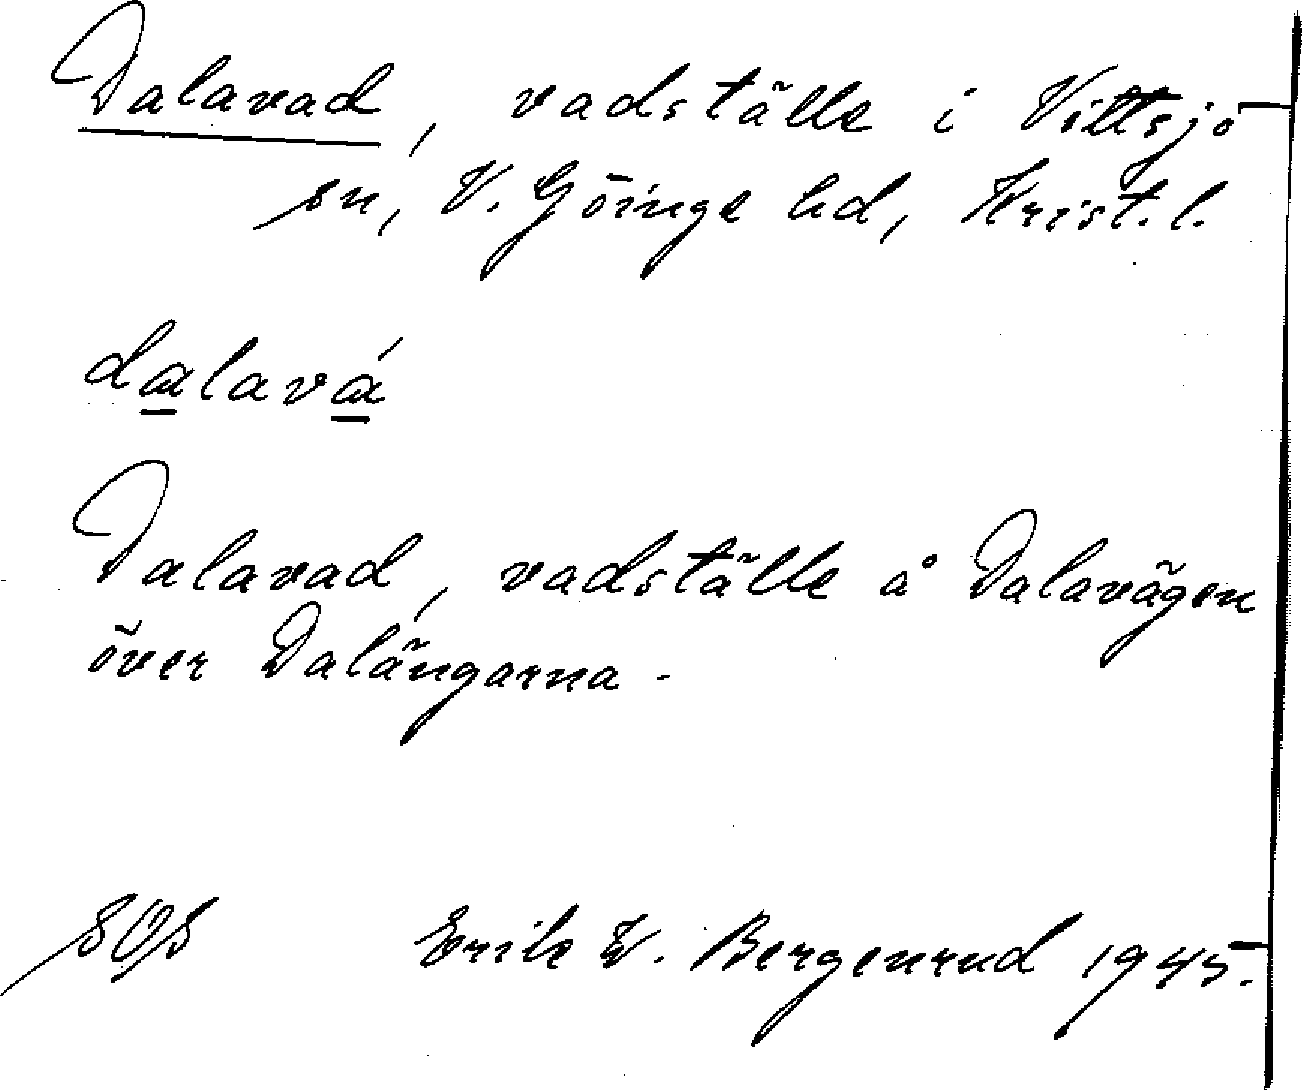 Dalavad, vadställe i Vittsjö
sn, V. Göinge hd, Krist. l.
dalavá
Dalavad, vadställe å Dalavägen
över Dalängarna.
SOS Erik W. Bergenrud 1945.